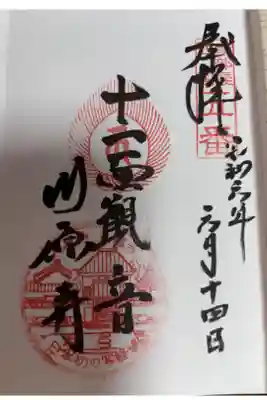 奉拝
五番
令和六年
六月十四日
十一面觀音
川原寺